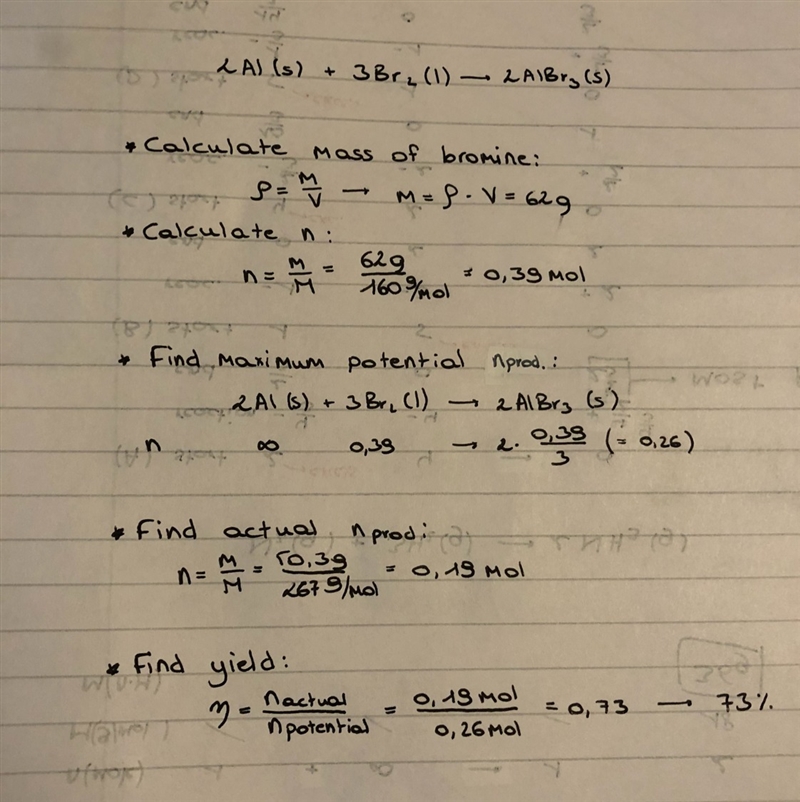 2Al (s) + 3Br₂ (l) → 2AlBr₃ (s)
* Calculate mass of bromine:
ρ = m/V → m = ρ · V = 62g
* Calculate n:
n = m/M = 62g / 160 g/mol = 0,39 mol
* Find maximum potential nprod.:
2Al (s) + 3Br₂ (l) → 2AlBr₃ (s)
n ∞ 0,39 → 2 · 0,39/3 (= 0,26)
* Find actual nprod:
n = m/M = 50,3g / 267 g/mol = 0,19 mol
* Find yield:
η = nactual / npotential = 0,19 mol / 0,26 mol = 0,73 → 73%